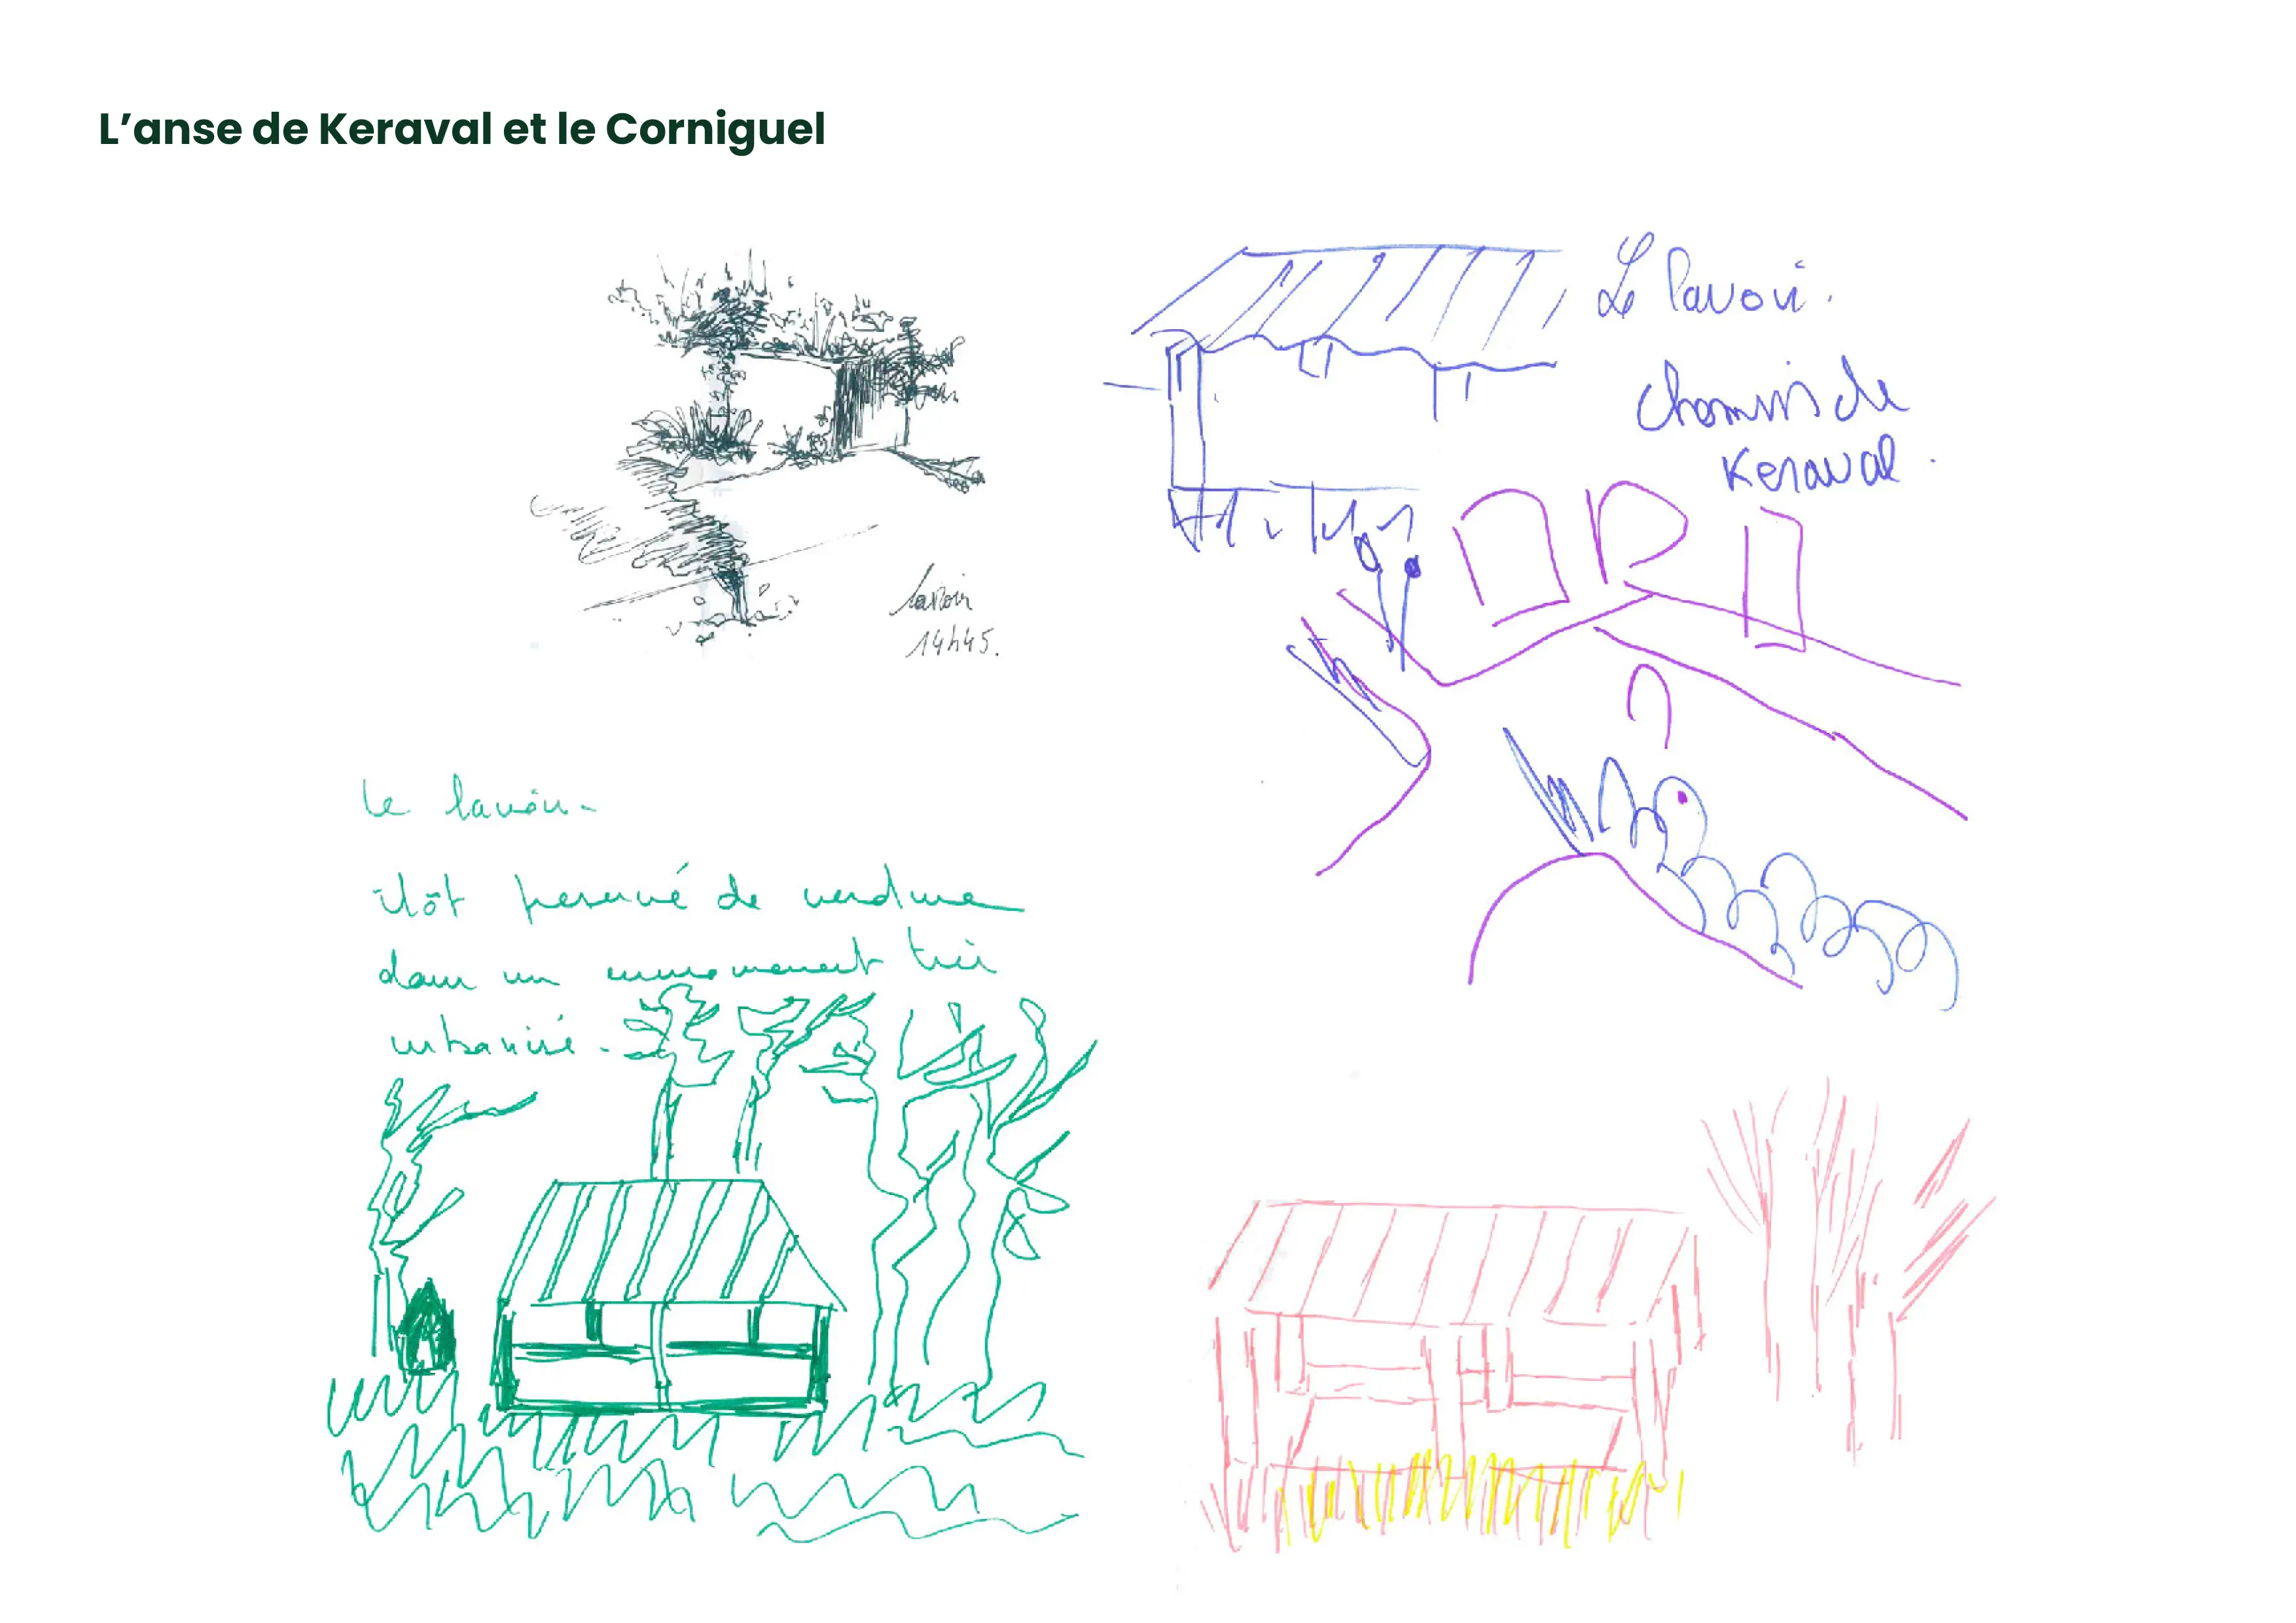 L’anse de Keraval et le Corniguel
Lavoir
14h45.
Le lavoir.
Chemin de
Keraval.
Le lavoir-
ilôt préservé de verdure
dans un environnement très
urbanisé-